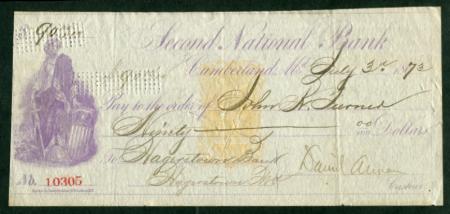 $90.00
Second National Bank
Cumberland, Md. July 3rd 1873
Pay to the order of John H. Turner
Ninety 00/100 Dollars
To Hagerstown Bank
Hagerstown Md. Daniel Annan
No. 10305 Cashier